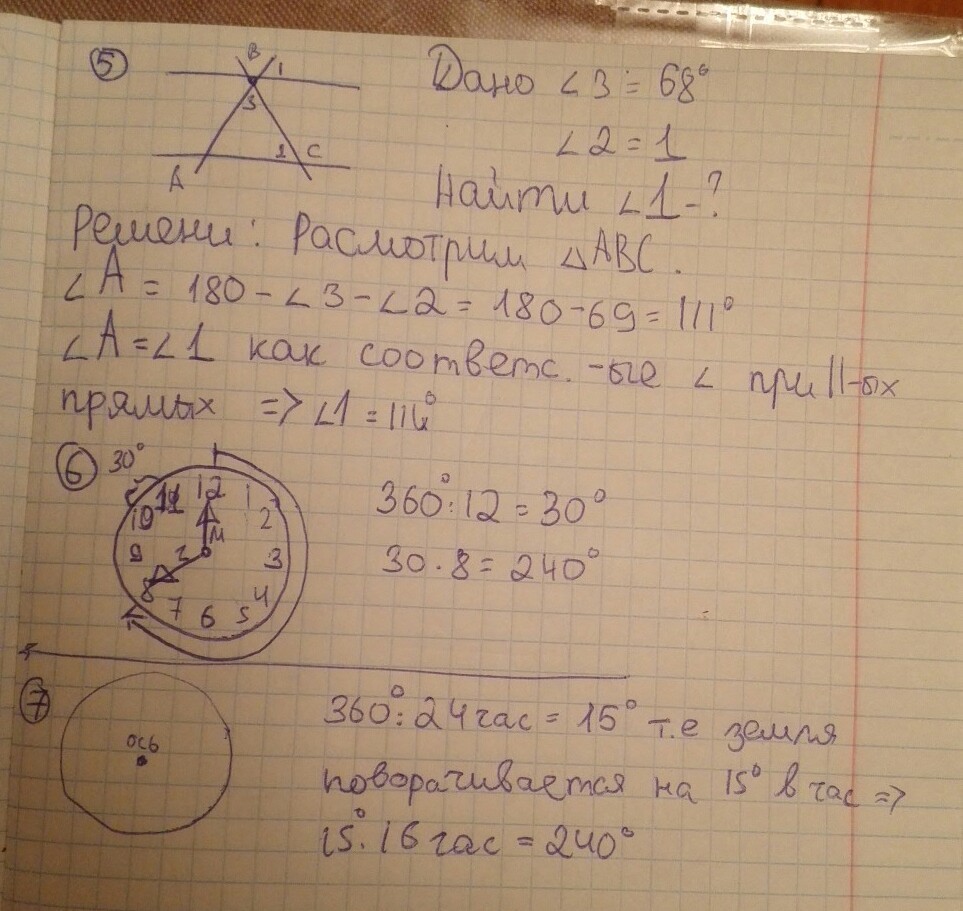 5 B 1 Дано ∠3 = 68°
3
2 C ∠2 = 1
A Найти ∠1-?
Решени: Расмотрим △ABC.
∠A = 180-∠3-∠2 = 180-69 = 111°
∠A=∠1 как соответс.-ые ∠ при ||-ых
прямых => ∠1 = 111°
6 30° 12 1 2 3 4 5 6 7 8 9 10 11 М 360°:12 = 30°
30·8 = 240°
7 ось 360°:24час = 15° т.е земля
поворачивается на 15° в час =>
15°·16час = 240°